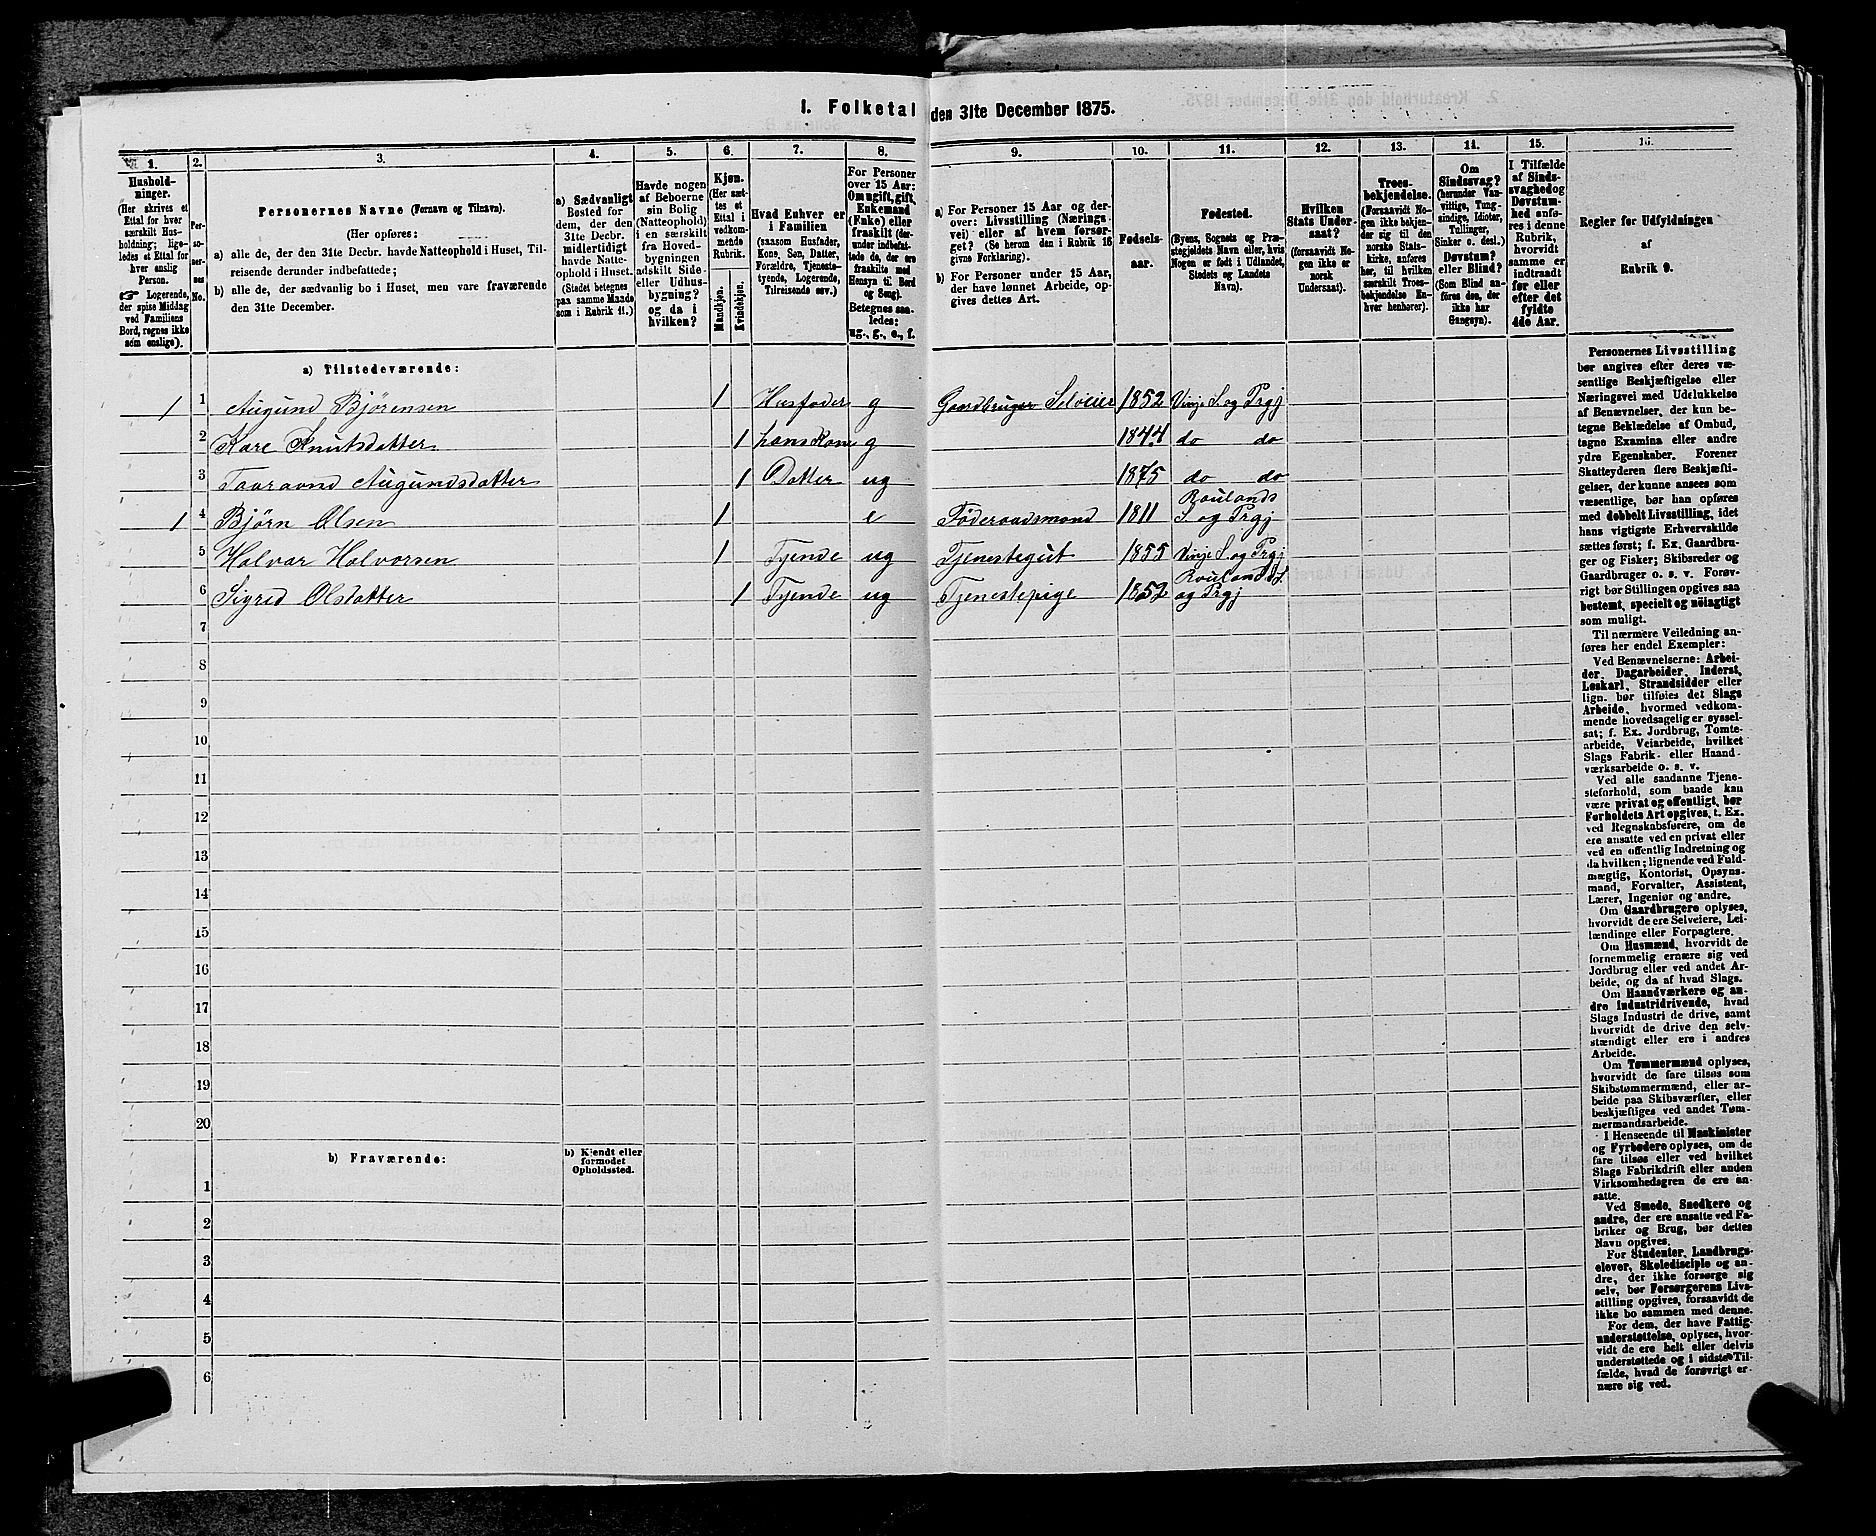 1. Folketal den 31te December 1875.
1. 2. 3. 4. 5. 6. 7. 8. 9. 10. 11. 12. 13. 14. 15. 16.
Hushold-
ninger.
(Her skrives et
Ettal for hver
særskilt Hus-
holdning; lige-
ledes et Ettal for
hver enslig
Person.
☞ Logerende,
der spise Middag
ved Familiens
Bord, regnes ikke
som enslige).
Per-
so-
ner-
nes
No.
Personernes Navne (Fornavn og Tilnavn).
(Her opføres:
a) alle de, der den 31te Decbr. havde Natteophold i Huset, Til-
reisende derunder indbefattede;
b) alle de, der sædvanlig bo i Huset, men vare fraværende
den 31te December.
a) Sædvanligt
Bosted for
dem, der den
31te Decbr.
midlertidigt
havde Natte-
ophold i Huset.
(Stedet betegnes
paa samme Maade
som i Rubrik 11.)
Havde nogen
af Beboerne
sin Bolig
(Natteophold)
i en særskilt
fra Hoved-
bygningen
adskilt Side-
eller Udhus-
bygning?
og da i
hvilken?
Kjøn.
(Her sæt-
tes et
Ettal i
vedkom-
mende
Rubrik.
Mandkjøn.
Kvindekjøn.
Hvad Enhver er
i Familien
(saasom Husfader,
Kone, Søn, Datter,
Forældre, Tjeneste-
tyende, Logerende,
Tilreisende osv.)
For Personer
over 15 Aar:
Om ugift, gift,
Enkemand
(Enke) eller
fraskilt (der-
under indbefat-
tede de, der ere
fraskilte med
Hensyn til Bord
og Seng).
Betegnes saa-
ledes:
ug., g., e., f.
a) For Personer 15 Aar og der-
over: Livsstilling (Nærings-
vei) eller af hvem forsør-
get? (Se herom den i Rubrik 16
givne Forklaring).
b) For Personer under 15 Aar,
der have lønnet Arbeide, op-
gives dettes Art.
Fødsels-
aar.
Fødested.
(Byens, Sognets og Præ-
stegjeldets Navn eller, hvis
Nogen er født i Udlandet,
Stedets og Landets
Navn).
Hvilken
Stats Under-
saat?
(forsaavidt No-
gen ikke er
norsk
Undersaat).
Troes-
bekjendelse.
(Forsaavidt No-
gen ikke bekjen-
der sig til den
norske Stats-
kirke, anføres
her, til hvilken
særskilt Troes-
bekjendelse En-
hver henhører).
Om
Sindssvag?
(herunder Van-
vittige, Tung-
sindige, Idioter,
Tullinger,
Sinker o. desl.)
Døvstum?
eller Blind?
(Som Blind an-
føres den, der
ikke har
Gangsyn).
I Tilfælde
af Sinds-
svaghed og
Døvstum-
hed anfø-
res i denne
Rubrik,
hvorvidt
samme er
indtraadt
før eller
efter det
fyldte
4de Aar.
Regler for Udfyldningen
af
Rubrik 9.
a) Tilstedeværende:
1 1 Augund Bjørensen 1 Husfader g Gaardbruger Selveier 1852 Vinje S. og Prgj
2 Kare Knutsdatter 1 hans Kone g 1844 do do
3 Taaraand Augundsdatter 1 Datter ug 1875 do do
1 4 Bjørn Olsen 1 e Føderaadsmand 1811 Raulands S. og Prgj
5 Halvar Halvorsen 1 Tjende ug Tjenestegut 1855 Vinje S. og Prgj
6 Sigrid Olsdatter 1 Tjende ug Tjenestepige 1852 Raulands S. og Prgj
7
8
9
10
11
12
13
14
15
16
17
18
19
20
b) Fraværende:
b) Kjendt eller
formodet
Opholdssted.
1
2
3
4
5
6
Personernes Livsstilling
bør angives efter deres væ-
sentlige Beskjæftigelse eller
Næringsvei med Udelukkelse
af Benævnelser, der kun be-
tegne Beklædelse af Ombud,
tagne Examina eller andre
ydre Egenskaber. Forener
Skatteyderen flere Beskjæfti-
gelser, der kunne ansees som
væsentlige, bør han opføres
med dobbelt Livsstilling, idet
hans vigtigste Erhvervskilde
sættes først; f. Ex. Gaardbru-
ger og Fisker; Skibsreder og
Gaardbruger o. s. v. Forøv-
rigt bør Stillingen opgives saa
bestemt, specielt og nöiagtigt
som muligt.
Til nærmere Veiledning an-
føres her endel Exempler:
Ved Benævnelserne: Arbei-
der, Dagarbeider, Inderst,
Løskarl, Strandsidder eller
lign. bør tilføies det Slags
Arbeide, hvormed vedkom-
mende hovedsagelig er syssel-
sat; f. Ex. Jordbrug, Tomte-
arbeide, Veiarbeide, hvilket
Slags Fabrik- eller Haand-
værksarbeide o. s. v.
Ved alle saadanne Tjene-
steforhold, som baade kan
være privat og offentligt, bør
Forholdets Art opgives, t. Ex.
ved Regnskabsførere, om de
ere ansatte ved en privat eller
ved en offentlig Indretning og
da hvilken; lignende ved Fuld-
mægtig, Kontorist, Opsyns-
mand, Forvalter, Assistent,
Lærer, Ingeniør og andre.
Om Gaardbrugere oplyses,
hvorvidt de ere Selveiere, Lei-
lændinge eller Forpagtere.
Om Husmænd, hvorvidt de
fornemmelig ernære sig ved
Jordbrug eller ved andet Ar-
beide, og da af hvad Slags.
Om Haandværkere og an-
dre Industridrivende, hvad
Slags Industri de drive, samt
hvorvidt de drive den selv-
stændigt eller ere i andres
Arbeide.
Om Tømmermænd oplyses,
hvorvidt de fare tilsøs som
Skibstømmermænd, eller ar-
beide paa Skibsværfter, eller
beskjæftiges ved andet Tøm-
mermandsarbeide.
I Henseende til Maskinister
og Fyrbødere oplyses, om de
fare tilsøs eller ved hvilket
Slags Fabrikdrift eller anden
Virksomhedsgren de ere an-
satte.
Ved Smede, Snedkere og
andre, der ere ansatte ved Fa-
briker og Brug, bør dettes
Navn opgives.
For Studenter, Landbrugs-
elever, Skoledisciple og an-
dre, der ikke forsørge sig
selv, bør Forsørgerens Livs-
stilling opgives, forsaavidt de
ikke bo sammen med denne.
For dem, der have Fattig-
understøttelse, oplyses, hvor-
vidt de ere helt eller delvis
understøttede og i sidste Til-
fælde, hvad de forøvrigt er-
nære sig ved.